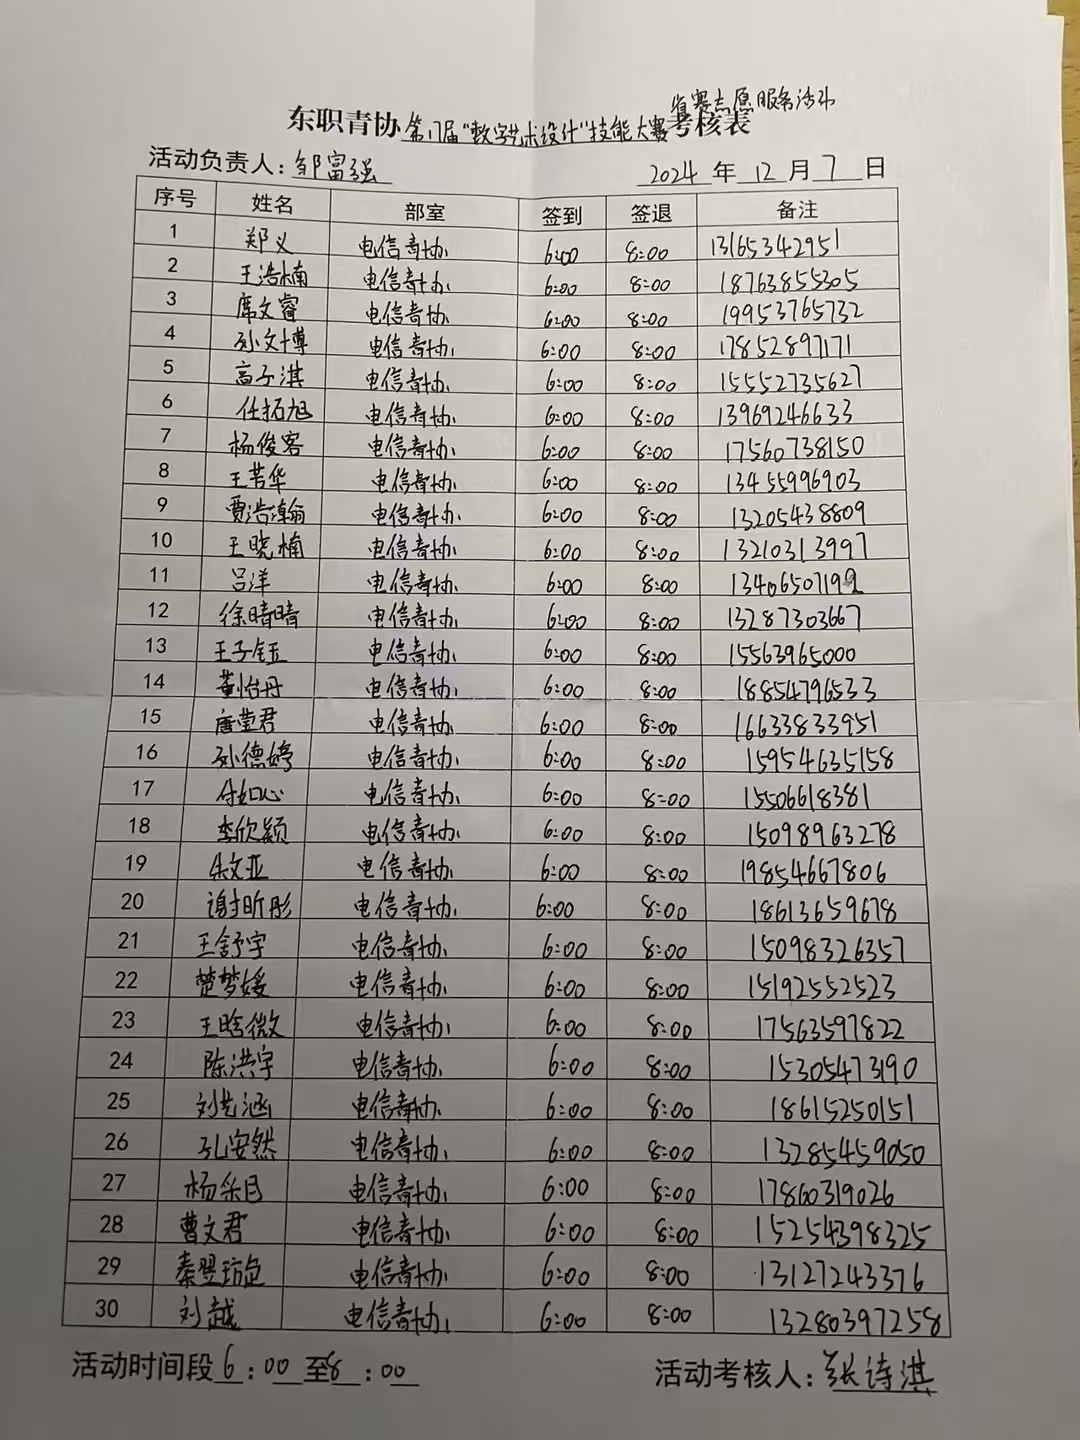 省赛志愿服务活动
东职青协第17届"数字艺术设计"技能大赛考核表
活动负责人：邹富强 2024 年 12 月 7 日
序号 姓名 部室 签到 签退 备注
1 郑义 电信青协 6:00 8:00 13165342951
2 王浩楠 电信青协 6:00 8:00 18763855305
3 席文睿 电信青协 6:00 8:00 19953765732
4 孙文博 电信青协 6:00 8:00 17852897171
5 高子淇 电信青协 6:00 8:00 15552735627
6 任拓旭 电信青协 6:00 8:00 13969246633
7 杨俊客 电信青协 6:00 8:00 17560738150
8 王芳华 电信青协 6:00 8:00 13455996903
9 贾浩瀚 电信青协 6:00 8:00 13205438809
10 王晓楠 电信青协 6:00 8:00 13210313997
11 吕洋 电信青协 6:00 8:00 1340650719
12 徐晴晴 电信青协 6:00 8:00 13287303667
13 王子钰 电信青协 6:00 8:00 15563965000
14 董怡丹 电信青协 6:00 8:00 18854796533
15 唐莹君 电信青协 6:00 8:00 16633833951
16 孙德婷 电信青协 6:00 8:00 15954635158
17 付如心 电信青协 6:00 8:00 15506618381
18 李欣颖 电信青协 6:00 8:00 15098963278
19 朱文亚 电信青协 6:00 8:00 19854667806
20 谢昕彤 电信青协 6:00 8:00 18613659678
21 王舒宇 电信青协 6:00 8:00 15098326357
22 楚梦媛 电信青协 6:00 8:00 15192552523
23 王晗微 电信青协 6:00 8:00 17563597822
24 陈洪宇 电信青协 6:00 8:00 15305473190
25 刘艺涵 电信青协 6:00 8:00 18615250151
26 孔安然 电信青协 6:00 8:00 13285459050
27 杨采 电信青协 6:00 8:00 17860319026
28 曹文君 电信青协 6:00 8:00 15254398325
29 秦翌 电信青协 6:00 8:00 13127243376
30 刘越 电信青协 6:00 8:00 13280397258
活动时间段 6：00 至 8：00 活动考核人：张诗淇